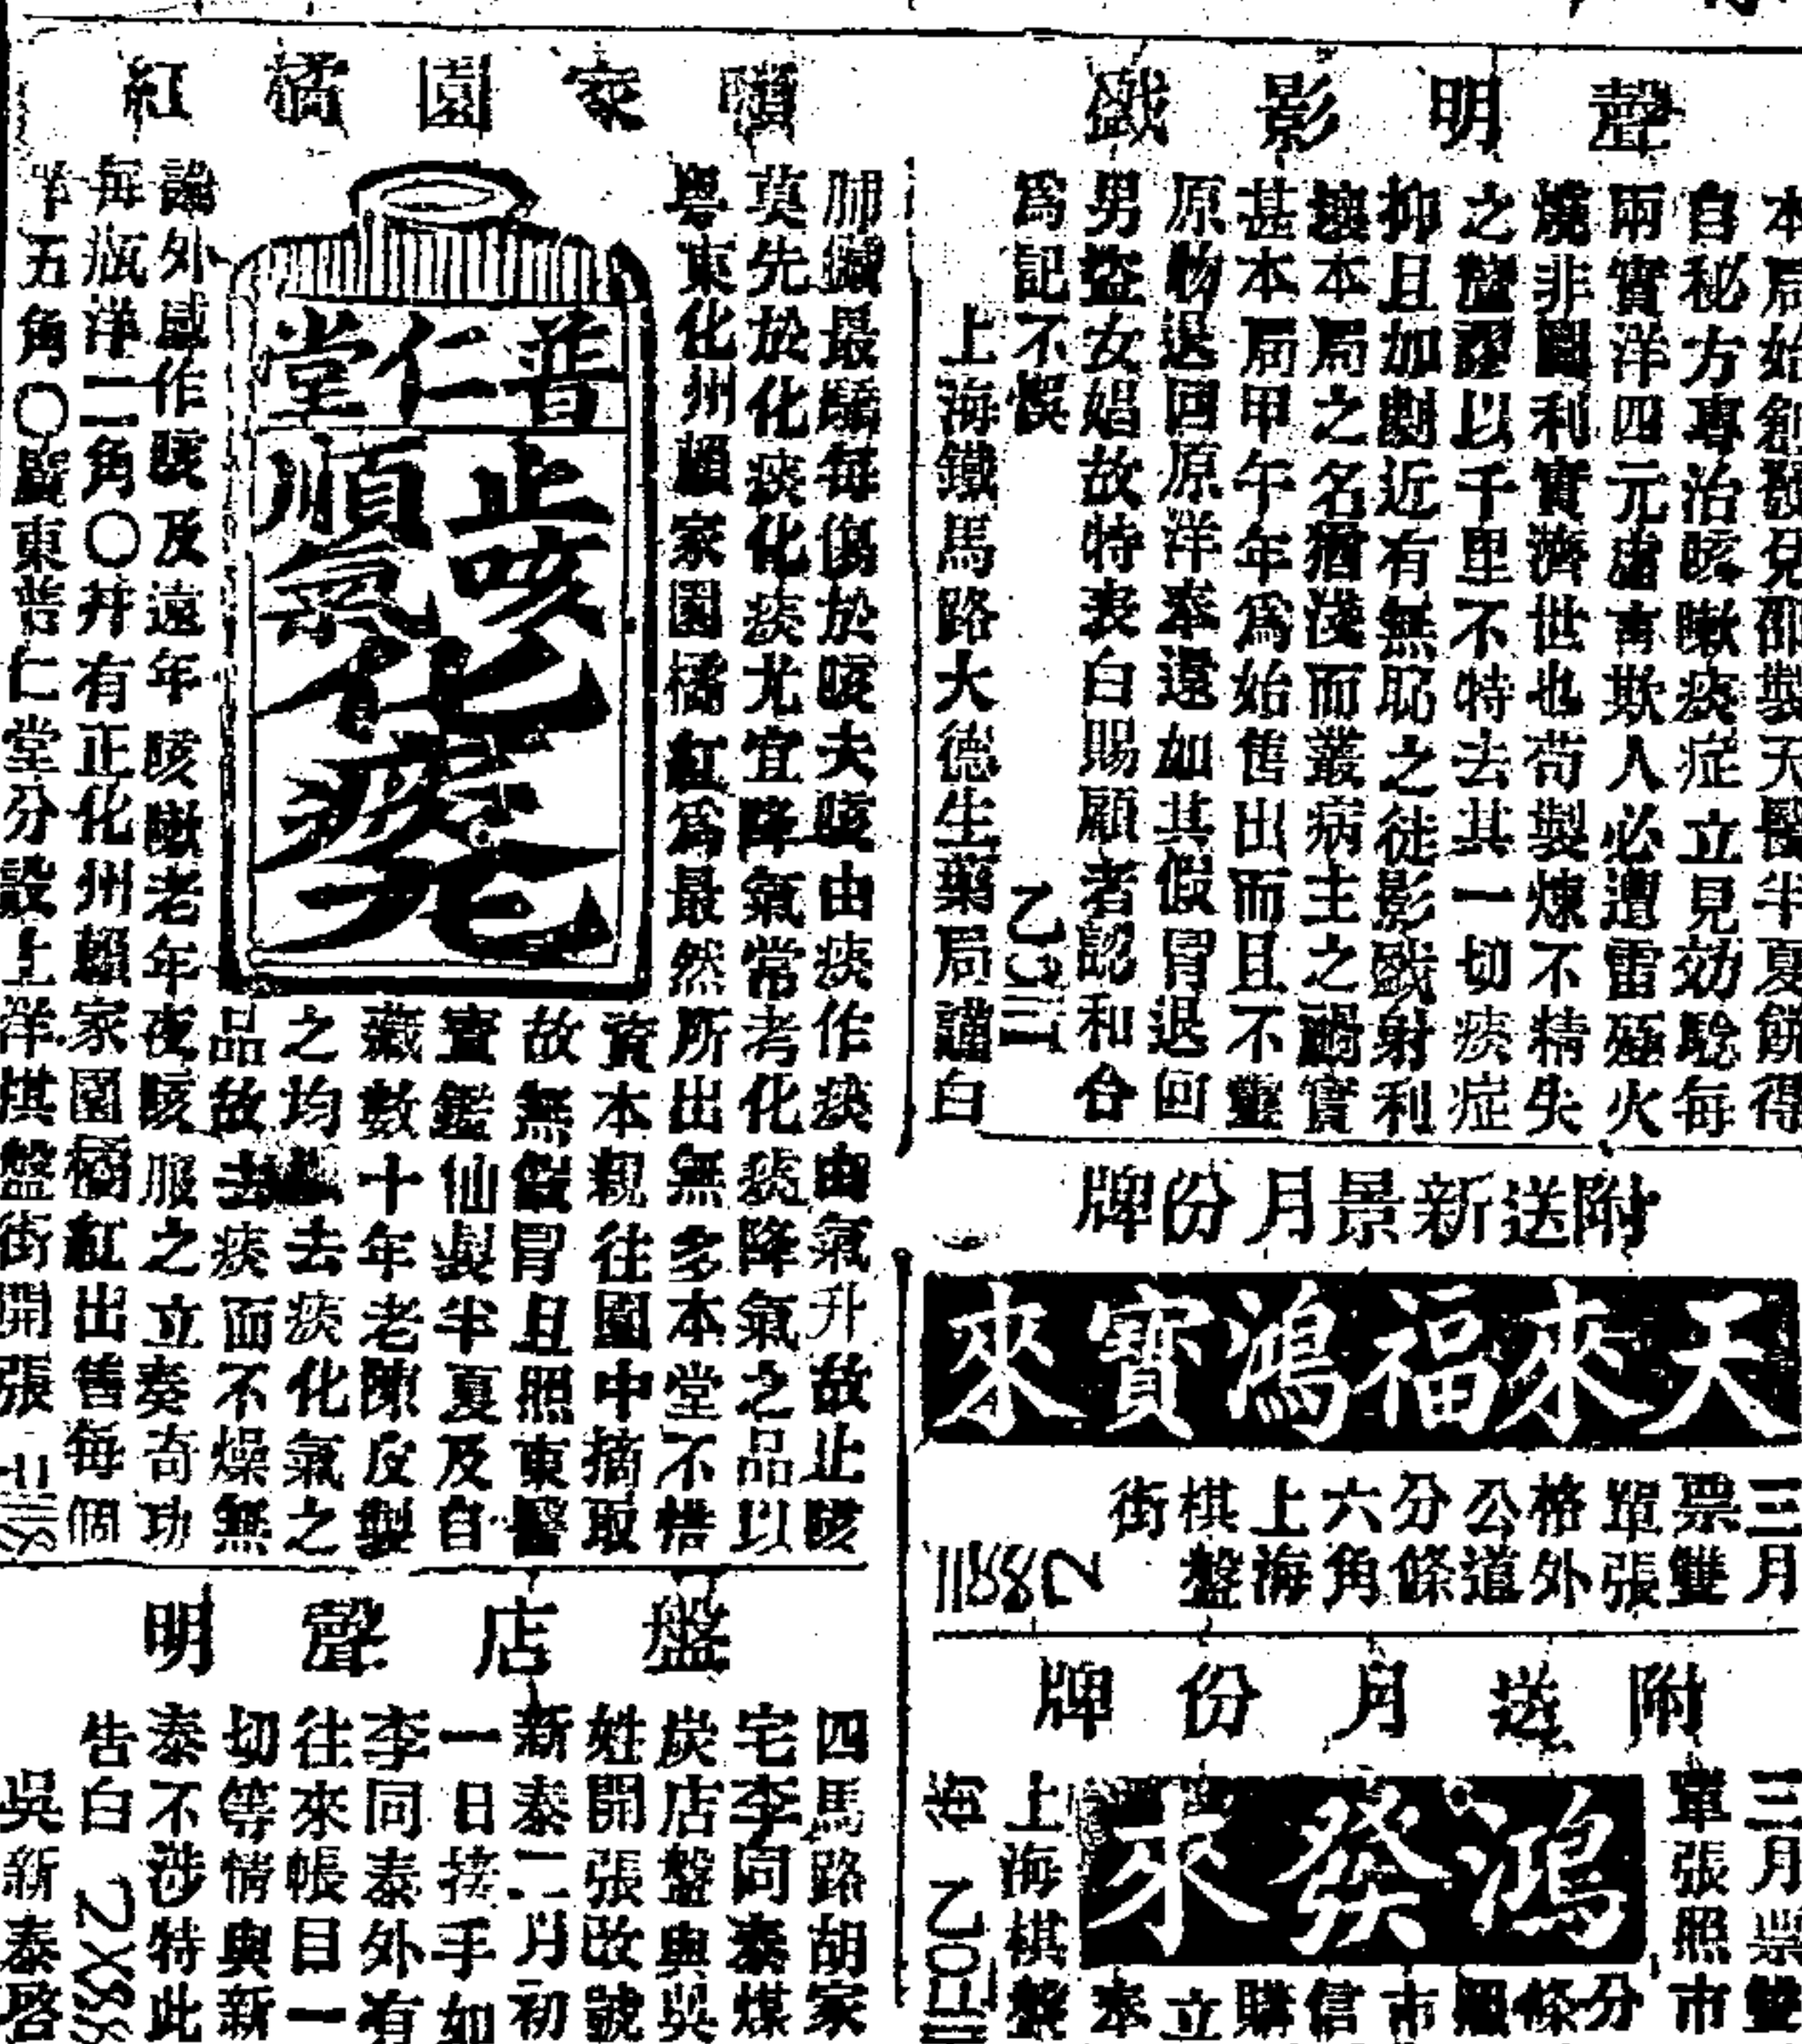 聲明影戲
本局始創發兌邵製天醫半夏餅得
自秘方專治咳嗽痰症立見効驗每
兩實洋四元虛言欺人必遭雷殛火
燒非圖利實濟世也苟製煉不精失
之釐謬以千里不特去其一切痰症
抑且加劇近有無恥之徒影戲射利
壞本局之名猶淺而叢病主之禍實
甚本局甲午年為始售出而且不靈
原物退回原洋奉還如其假冒退回
男盜女娼故特表白賜顧者認和合
為記不悞
上海鐵馬路大德生藥局謹白
附送新景月份牌
天來福鴻寶來
三月
票雙
單張
格外
公道
分條
六角
上海
棋盤
街
附送月份牌
三月票雙
單張照市
鴻發來
分
條
照
市
信
購
立
奉
上海棋盤
賴家園橘紅
肺臟最驕每傷於咳夫咳由痰作痰由氣升故止咳
莫先於化痰化痰尤宜降氣常考化痰降氣之品以
粵東化州賴家園橘紅為最然所出無多本堂不惜
資本親往園中摘取
故無假冒且照東醫
寶鑑仙製半夏及自
藏數十年老陳皮製
之均去痰化氣之
品故去痰而不燥無
普仁堂
止咳
順氣
化痰
論外感作咳及遠年咳嗽老年夜咳服之立奏奇功
每瓶洋二角〇并有正化州賴家園橘紅出售每個
洋五角〇廣東普仁堂分設上洋棋盤街開張
盤店聲明
四馬路胡家
宅李同泰煤
炭店盤與吳
姓開張改號
新泰二月初
一日接手如
李同泰外有
往來帳目一
切等情與新
泰不涉特此
告白
吳新泰啓